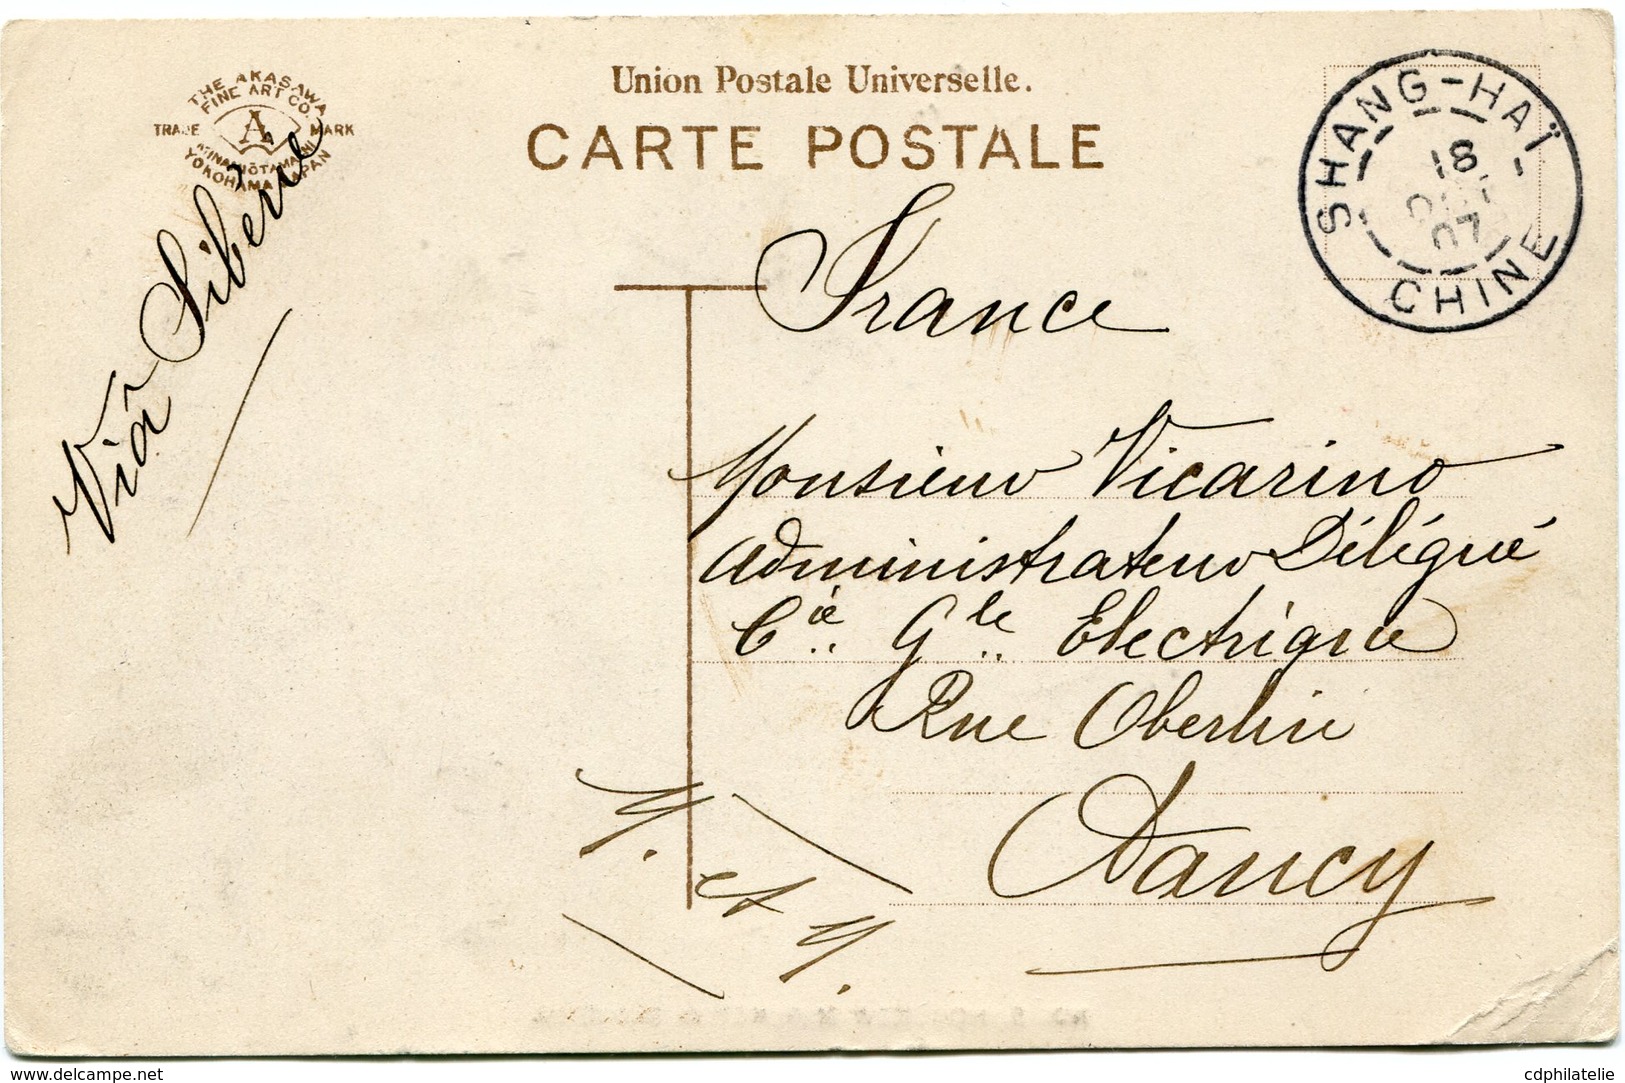 THE AKASAWA
FINE ART CO.
TRADE A MARK
YOKOHAMA JAPAN
Union Postale Universelle.
CARTE POSTALE
SHANG-HAÏ
18
OCT
07
CHINE
Viâ Sibérie
France
Monsieur Vicarino
Administrateur Délégué
Cie. Gle. Electrique
Rue Oberlin
Nancy
M. et M.
www.delcampe.net
cdphilatelie